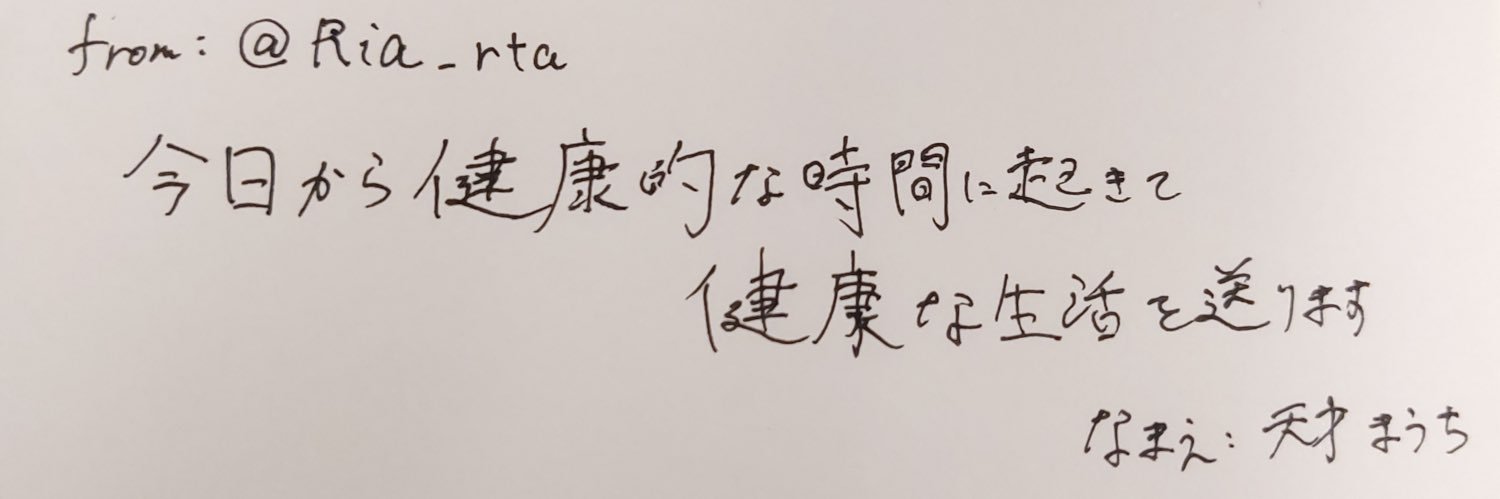 from: @Ria_rta
今日から健康的な時間に起きて
健康な生活を送ります
なまえ: 天才まうち